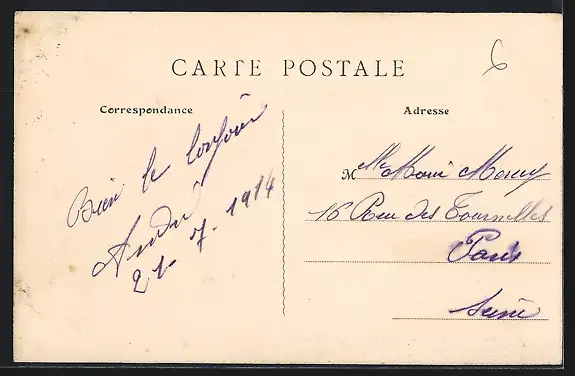 CARTE POSTALE
6
Correspondance
Adresse
Bien le bonjour
André
21-7-1914
M
16 Rue des Tournelles
Paris
Seine